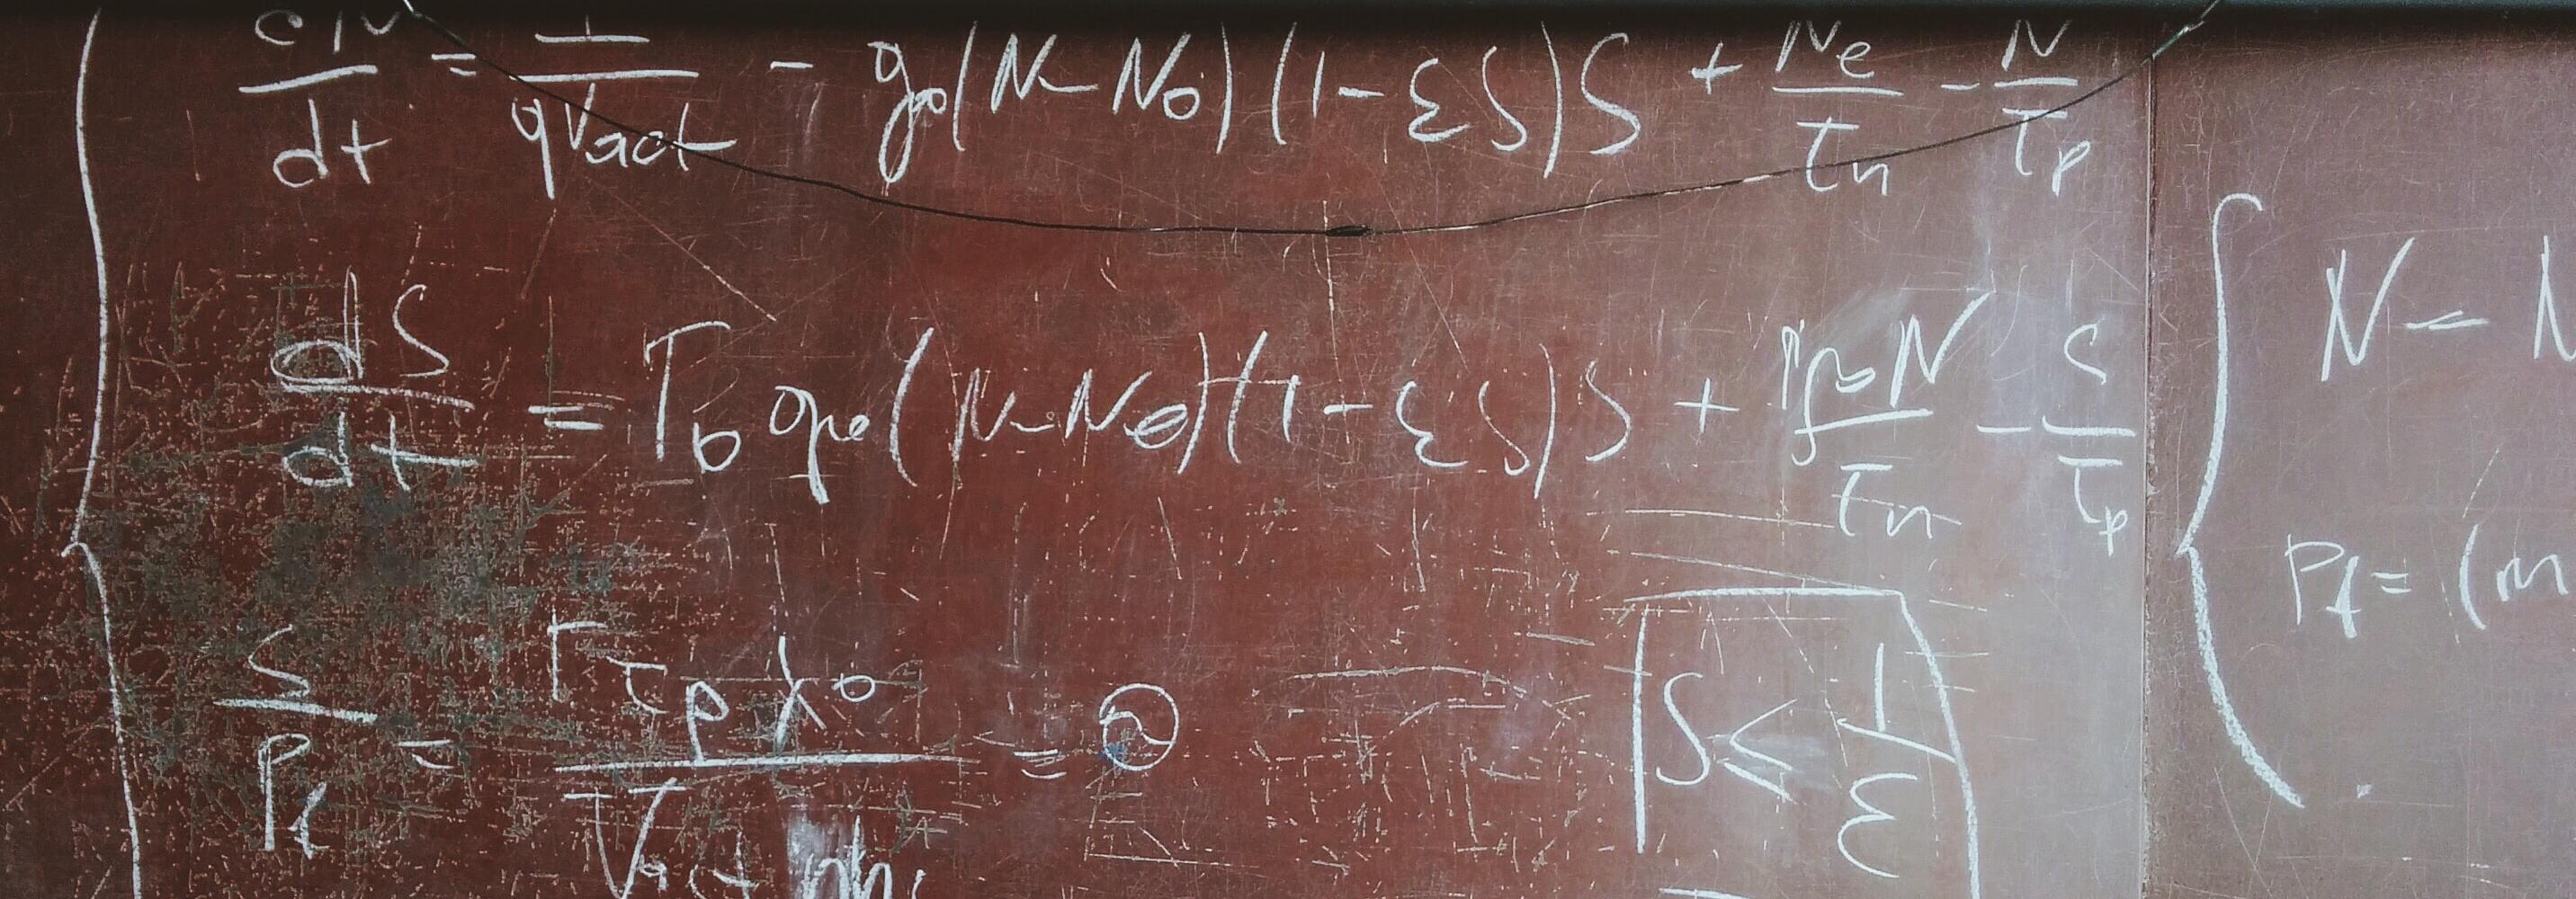 dN/dt = I/qVact - g₀(N-N₀)(1-εS)S + Ne/τn - N/τp
dS/dt = Γ₀g₀(N-N₀)(1-εS)S + ΓβN/τn - S/τp
S/Pf = Γτpλ₀/Vact ηh =
S ≤ 1/ε
N - N
Pf = (m